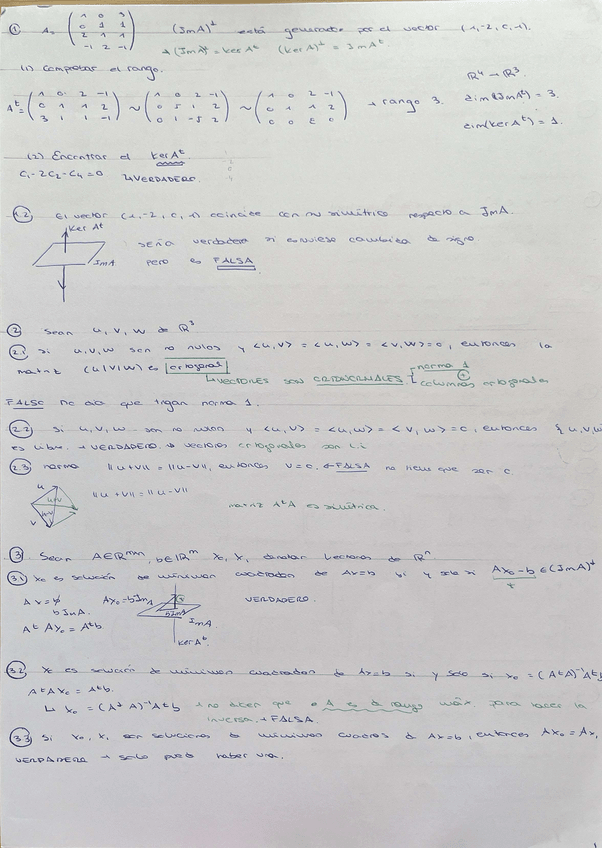 ① A = ( 1 0 3 / 0 1 1 / 2 1 1 / -1 2 -1 ) (ImA)⊥ está generado por el vector (1,-2,0,-1).
→ (ImA)⊥ = KerAᵗ (KerA)⊥ = ImAᵗ
(1) Comprobar el rango. ℝ⁴ → ℝ³.
Aᵗ = ( 1 0 2 -1 / 0 1 1 2 / 3 1 1 -1 ) ~ ( 1 0 2 -1 / 0 5 1 2 / 0 1 -5 2 ) ~ ( 1 0 2 -1 / 0 1 1 2 / 0 0 ε 0 ) → rango 3. dim(ImAᵗ) = 3.
dim(KerAᵗ) = 1.
(2) Encontrar el KerAᵗ
C₁-2C₂-C₄=0 ↳ VERDADERO.
1.2 El vector (1,-2,0,-1) coincide con su simétrico respecto a ImA.
Ker Aᵗ
sería verdadera si estuviese cambiada de signo
ImA pero es FALSA
② Sean u, v, w de ℝ³
2.1 si u, v, w son no nulos y <u,v> = <u,w> = <v,w> = 0, entonces la
matriz (u|v|w) es ortogonal norma 1
↳ VECTORES SON ORTONORMALES ⊕ columnas ortogonales
FALSO no dice que tengan norma 1.
2.2 Si u, v, w son no nulos y <u,v> = <u,w> = <v,w> = 0, entonces {u,v,w
es libre. → VERDADERO → vectores ortogonales son l.i
2.3 norma ||u+v|| = ||u-v||, entonces v=0. ← FALSA no tiene que ser 0.
u
u+v ||u+v|| = ||u-v||
u-v matriz AᵗA es simétrica.
v
③ Sean A∈ℝᵐˣⁿ, b∈ℝᵐ x₀, x₁ denotar vectores de ℝⁿ
3.1 x₀ es solución de mínimos cuadrados de Ax=b si y solo si Ax₀-b ∈ (ImA)⊥
Ax = b Ax₀ = b ImA VERDADERO.
b ImA. b ImA ImA
AᵗAx₀ = Aᵗb KerAᵗ
3.2 x₀ es solución de mínimos cuadrados de Ax=b si y solo si x₀ = (AᵗA)⁻¹Aᵗb
AᵗAx₀ = Aᵗb.
↳ x₀ = (AᵗA)⁻¹Aᵗb → no dicen que A es de rango máx, para hacer la
inversa. → FALSA.
3.3 Si x₀, x₁ son soluciones de mínimos cuadros de Ax=b, entonces Ax₀ = Ax₁
VERDADERA → solo puede haber una.